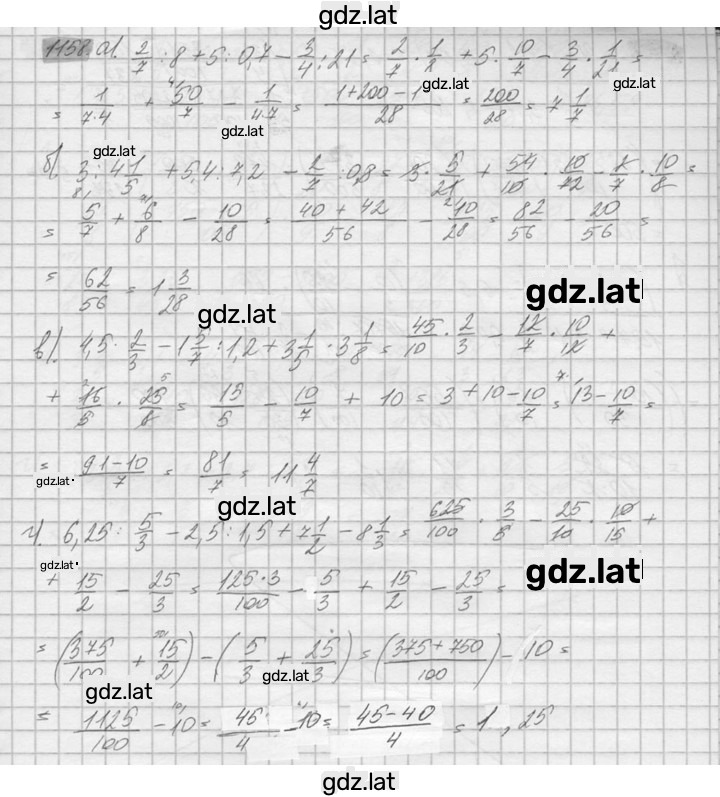 gdz.lat
1158. а). 2/7 : 8 + 5 : 0,7 - 3/4 : 21 = 2/7 · 1/8 + 5 · 10/7 - 3/4 · 1/21 =
gdz.lat gdz.lat
= 1/(7·4) + 50/7 - 1/(4·7) = (1+200-1)/28 = 200/28 = 7 1/7
gdz.lat
gdz.lat
б) 3 : 4 1/5 + 5,4 : 7,2 - 2/7 : 0,8 = 3 · 5/21 + 54/10 · 10/72 - 2/7 · 10/8 =
= 5/7 + 6/8 - 10/28 = (40 + 42)/56 - 10/28 = 82/56 - 20/56 =
= 62/56 = 1 3/28
gdz.lat
gdz.lat
в). 4,5 · 2/3 - 1 5/7 : 1,2 + 3 1/5 · 3 1/8 = 45/10 · 2/3 - 12/7 · 10/12 +
+ 16/5 · 25/8 = 15/5 - 10/7 + 10 = 3 + 10 - 10/7 = 13 - 10/7 =
= (91-10)/7 = 81/7 = 11 4/7
gdz.lat
gdz.lat
г). 6,25 : 5/3 - 2,5 : 1,5 + 7 1/2 - 8 1/3 = 625/100 · 3/5 - 25/10 · 10/15 +
gdz.lat
gdz.lat
+ 15/2 - 25/3 = (125·3)/100 - 5/3 + 15/2 - 25/3 =
= (375/100 + 15/2) - (5/3 + 25/3) = ((375+750)/100) - 10 =
gdz.lat
gdz.lat
= 1125/100 - 10 = 45/4 - 10 = (45-40)/4 = 1,25
gdz.lat